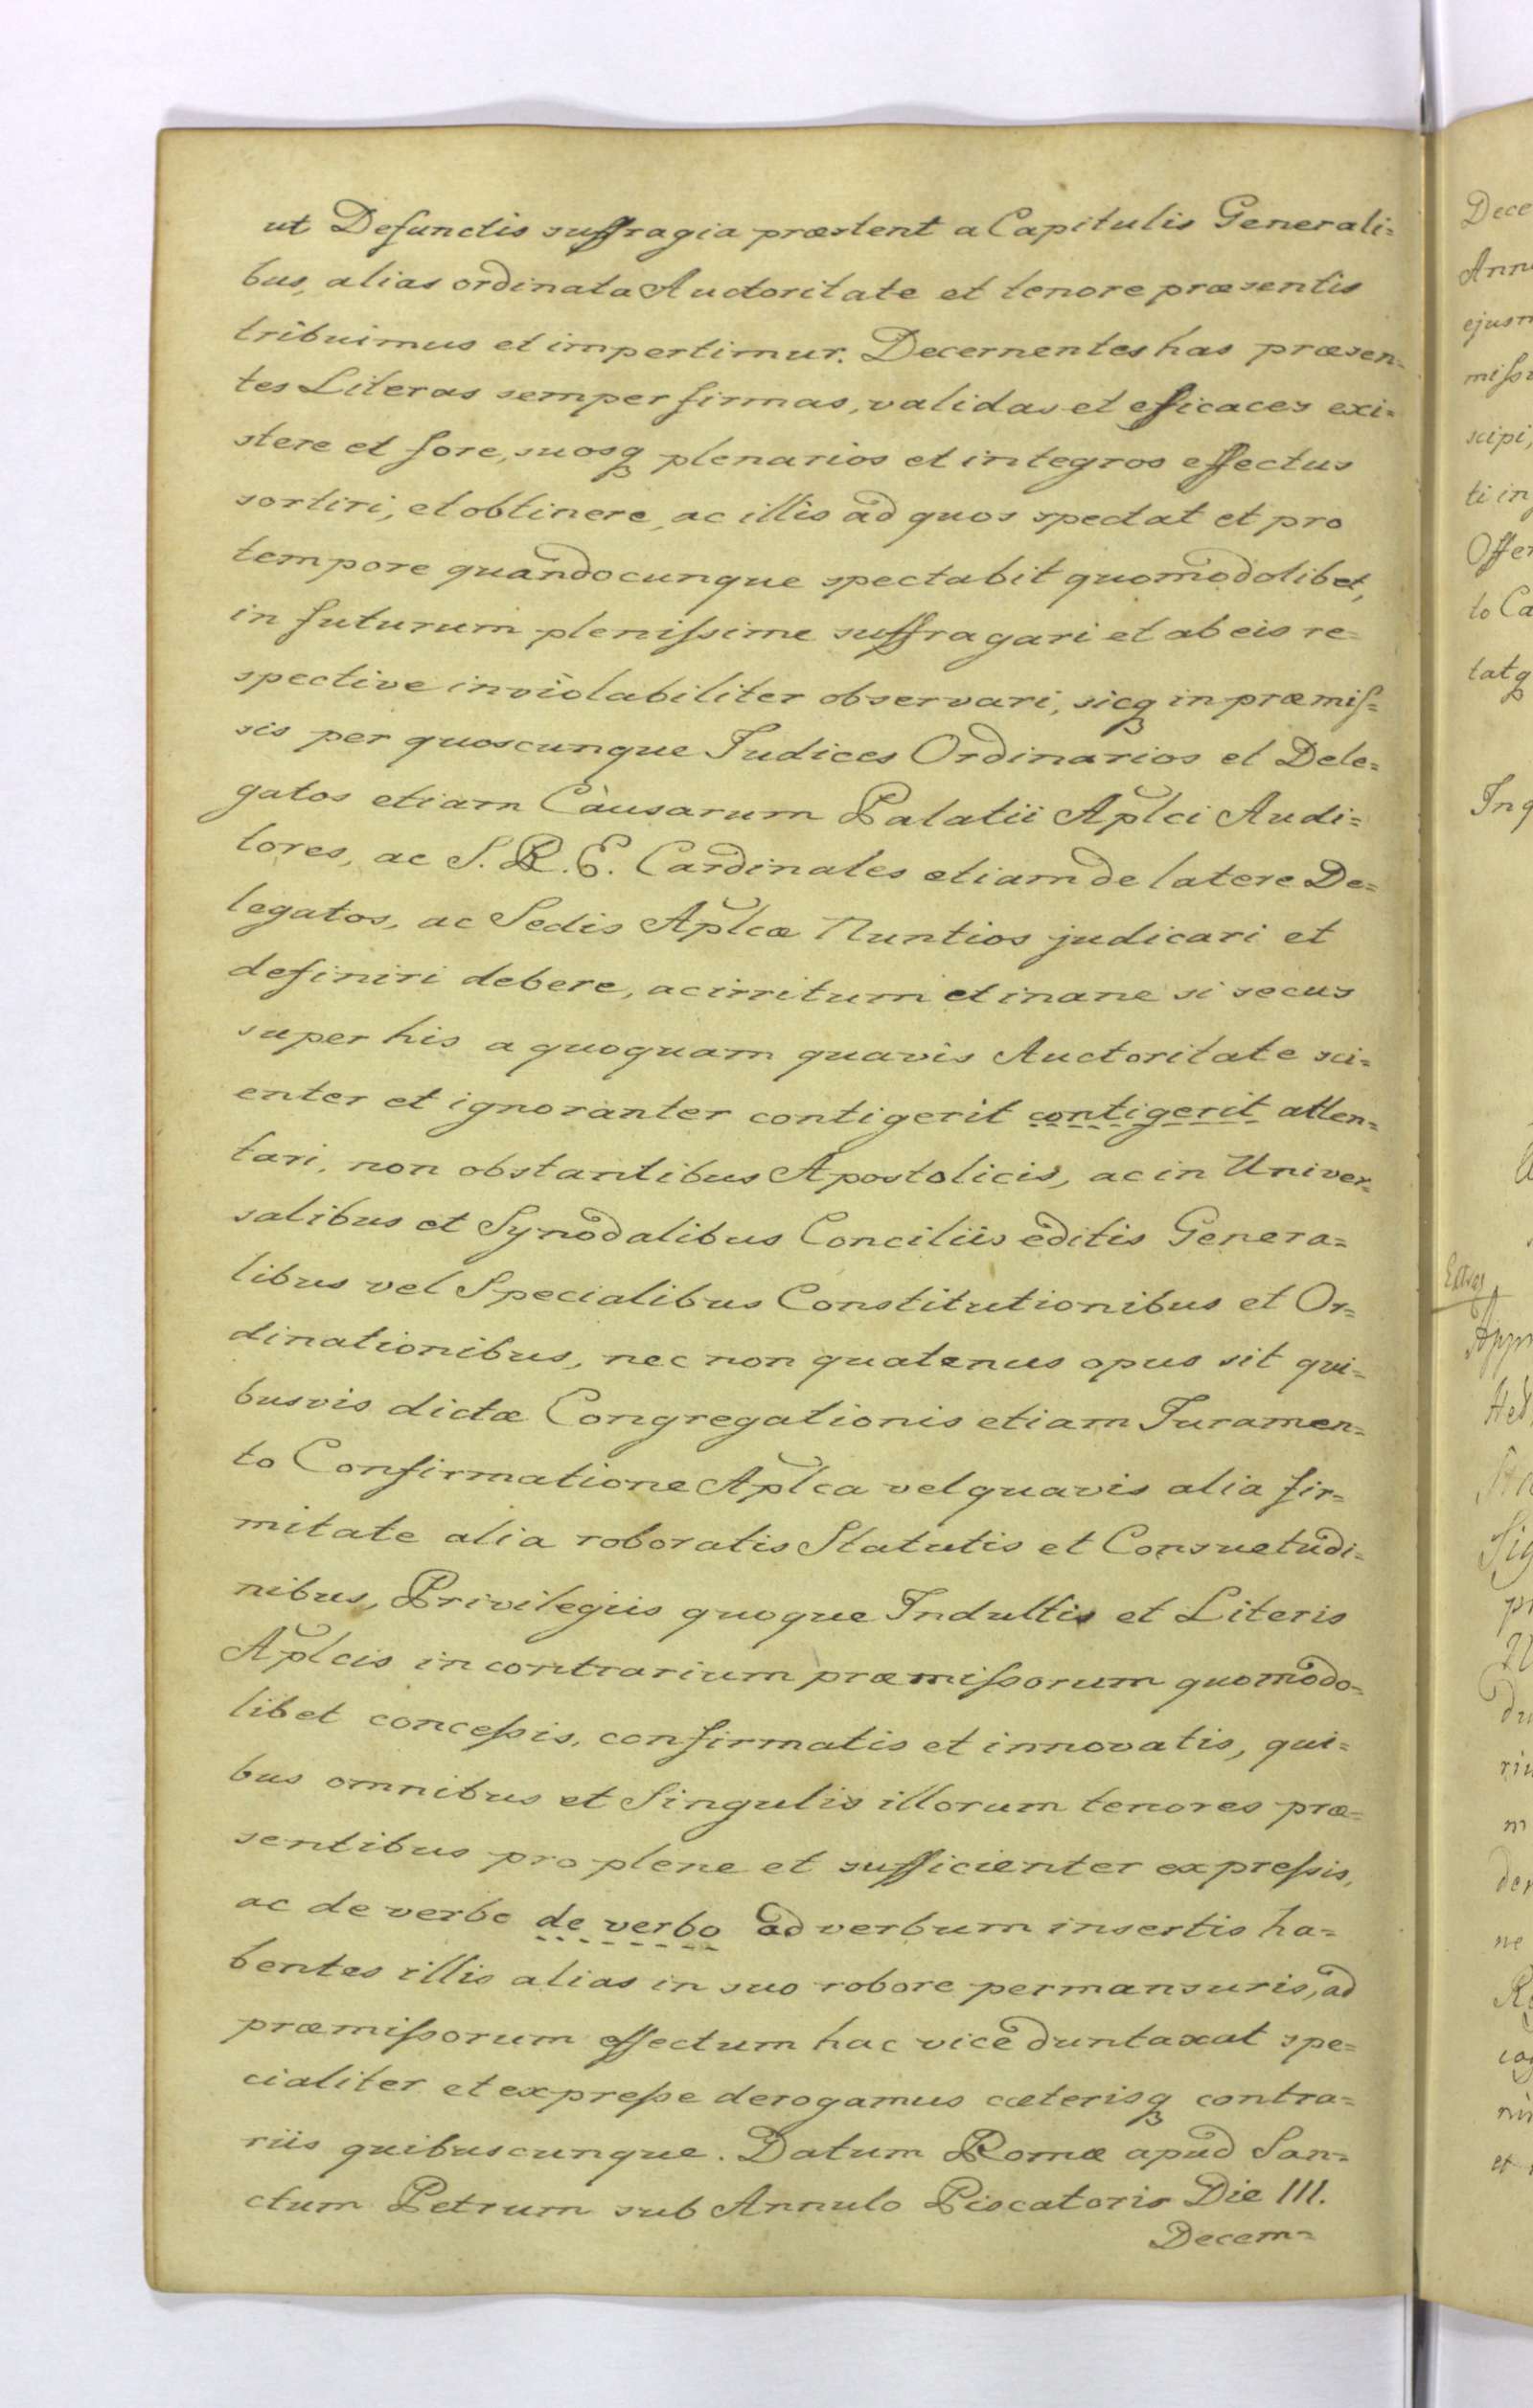 ut Defunctis suffragia præstent a Capitulis Generali=
bus, alias ordinata Auctoritate et tenore præsentis
tribuimus et impertimur. Decernentes has præsen=
tes Literas semper firmas, validas et eficaces exi=
stere et fore, suosq plenarios et integros effectus
sortiri, et obtinere, ac illis ad quos spectat et pro
tempore quandocunque spectabit quomodolibet,
in futurum plenissime suffragari et ab eis re=
spective inviolabiliter observari, sicq in præmis=
sis per quoscunque Judices Ordinarios et Dele=
gatos etiam Causarum Palatii Aplci Audi=
tores, ac S. R. E. Cardinales etiam de latere De=
legatos, ac Sedis Aplcæ Nuntios judicari et
definiri debere, ac irritum et inane si secus
super his a quoquam quavis Auctoritate sci=
enter et ignoranter contigerit contigerit atten=
tari, non obstantibus Apostolicis, ac in Univer=
salibus et Synodalibus Conciliis editis Genera=
libus vel Specialibus Constitutionibus et Or=
dinationibus, nec non quatenus opus sit qui=
busvis dictæ Congregationis etiam Juramen=
to Confirmatione Aplca vel quavis alia fir=
mitate alia roboratis Statutis et Consuetudi=
nibus, Privilegiis quoque Indultis et Literis
Aplcis in contrarium præmissorum quomodo=
libet concessis, confirmatis et innovatis, qui=
bus omnibus et Singulis illorum tenores præ=
sentibus pro plene et sufficienter expressis,
ac de verbo de verbo ad verbum insertis ha=
bentes illis alias in suo robore permansuris, ad
præmissorum effectum hac vice duntaxat spe=
cialiter et expresse derogamus cæterisq contra=
riis quibuscunque. Datum Romæ apud San=
ctum Petrum sub Annulo Piscatoris Die III.
Decem=